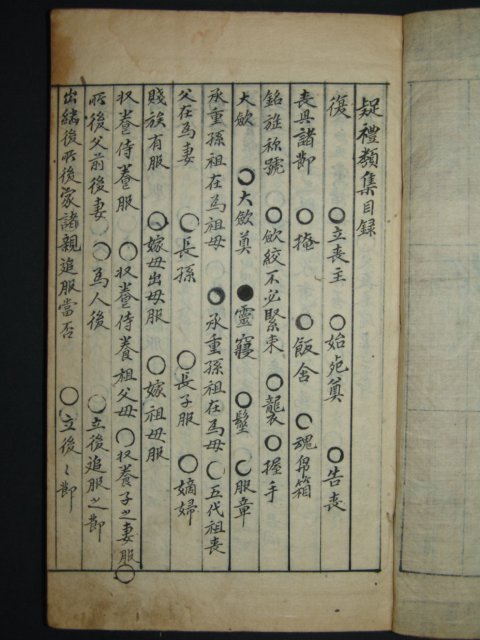 疑禮類集目録
復 ○立喪主 ○始死奠 ○告喪
喪具諸節 ○掩 ○飯含 ○魂帛箱
銘旌 號 ○斂絞不必緊束 ○襲 ○握手
大斂 ○大斂奠 ●靈寢 ○髽 ○服章
承重孫祖在為祖母 ○承重孫祖在為母 ○五代祖喪
父在為妻 ○長孫 ○長子服 ○嫡婦
賤族有服 ○嫁母出母服 ○嫁祖母服
収養侍養服 ○収養侍養祖父母 ○収養子之妻服○
所後父前後妻 ○為人後 ○立後追服之節
出繼後所後家諸親追服當否 ○立後之節